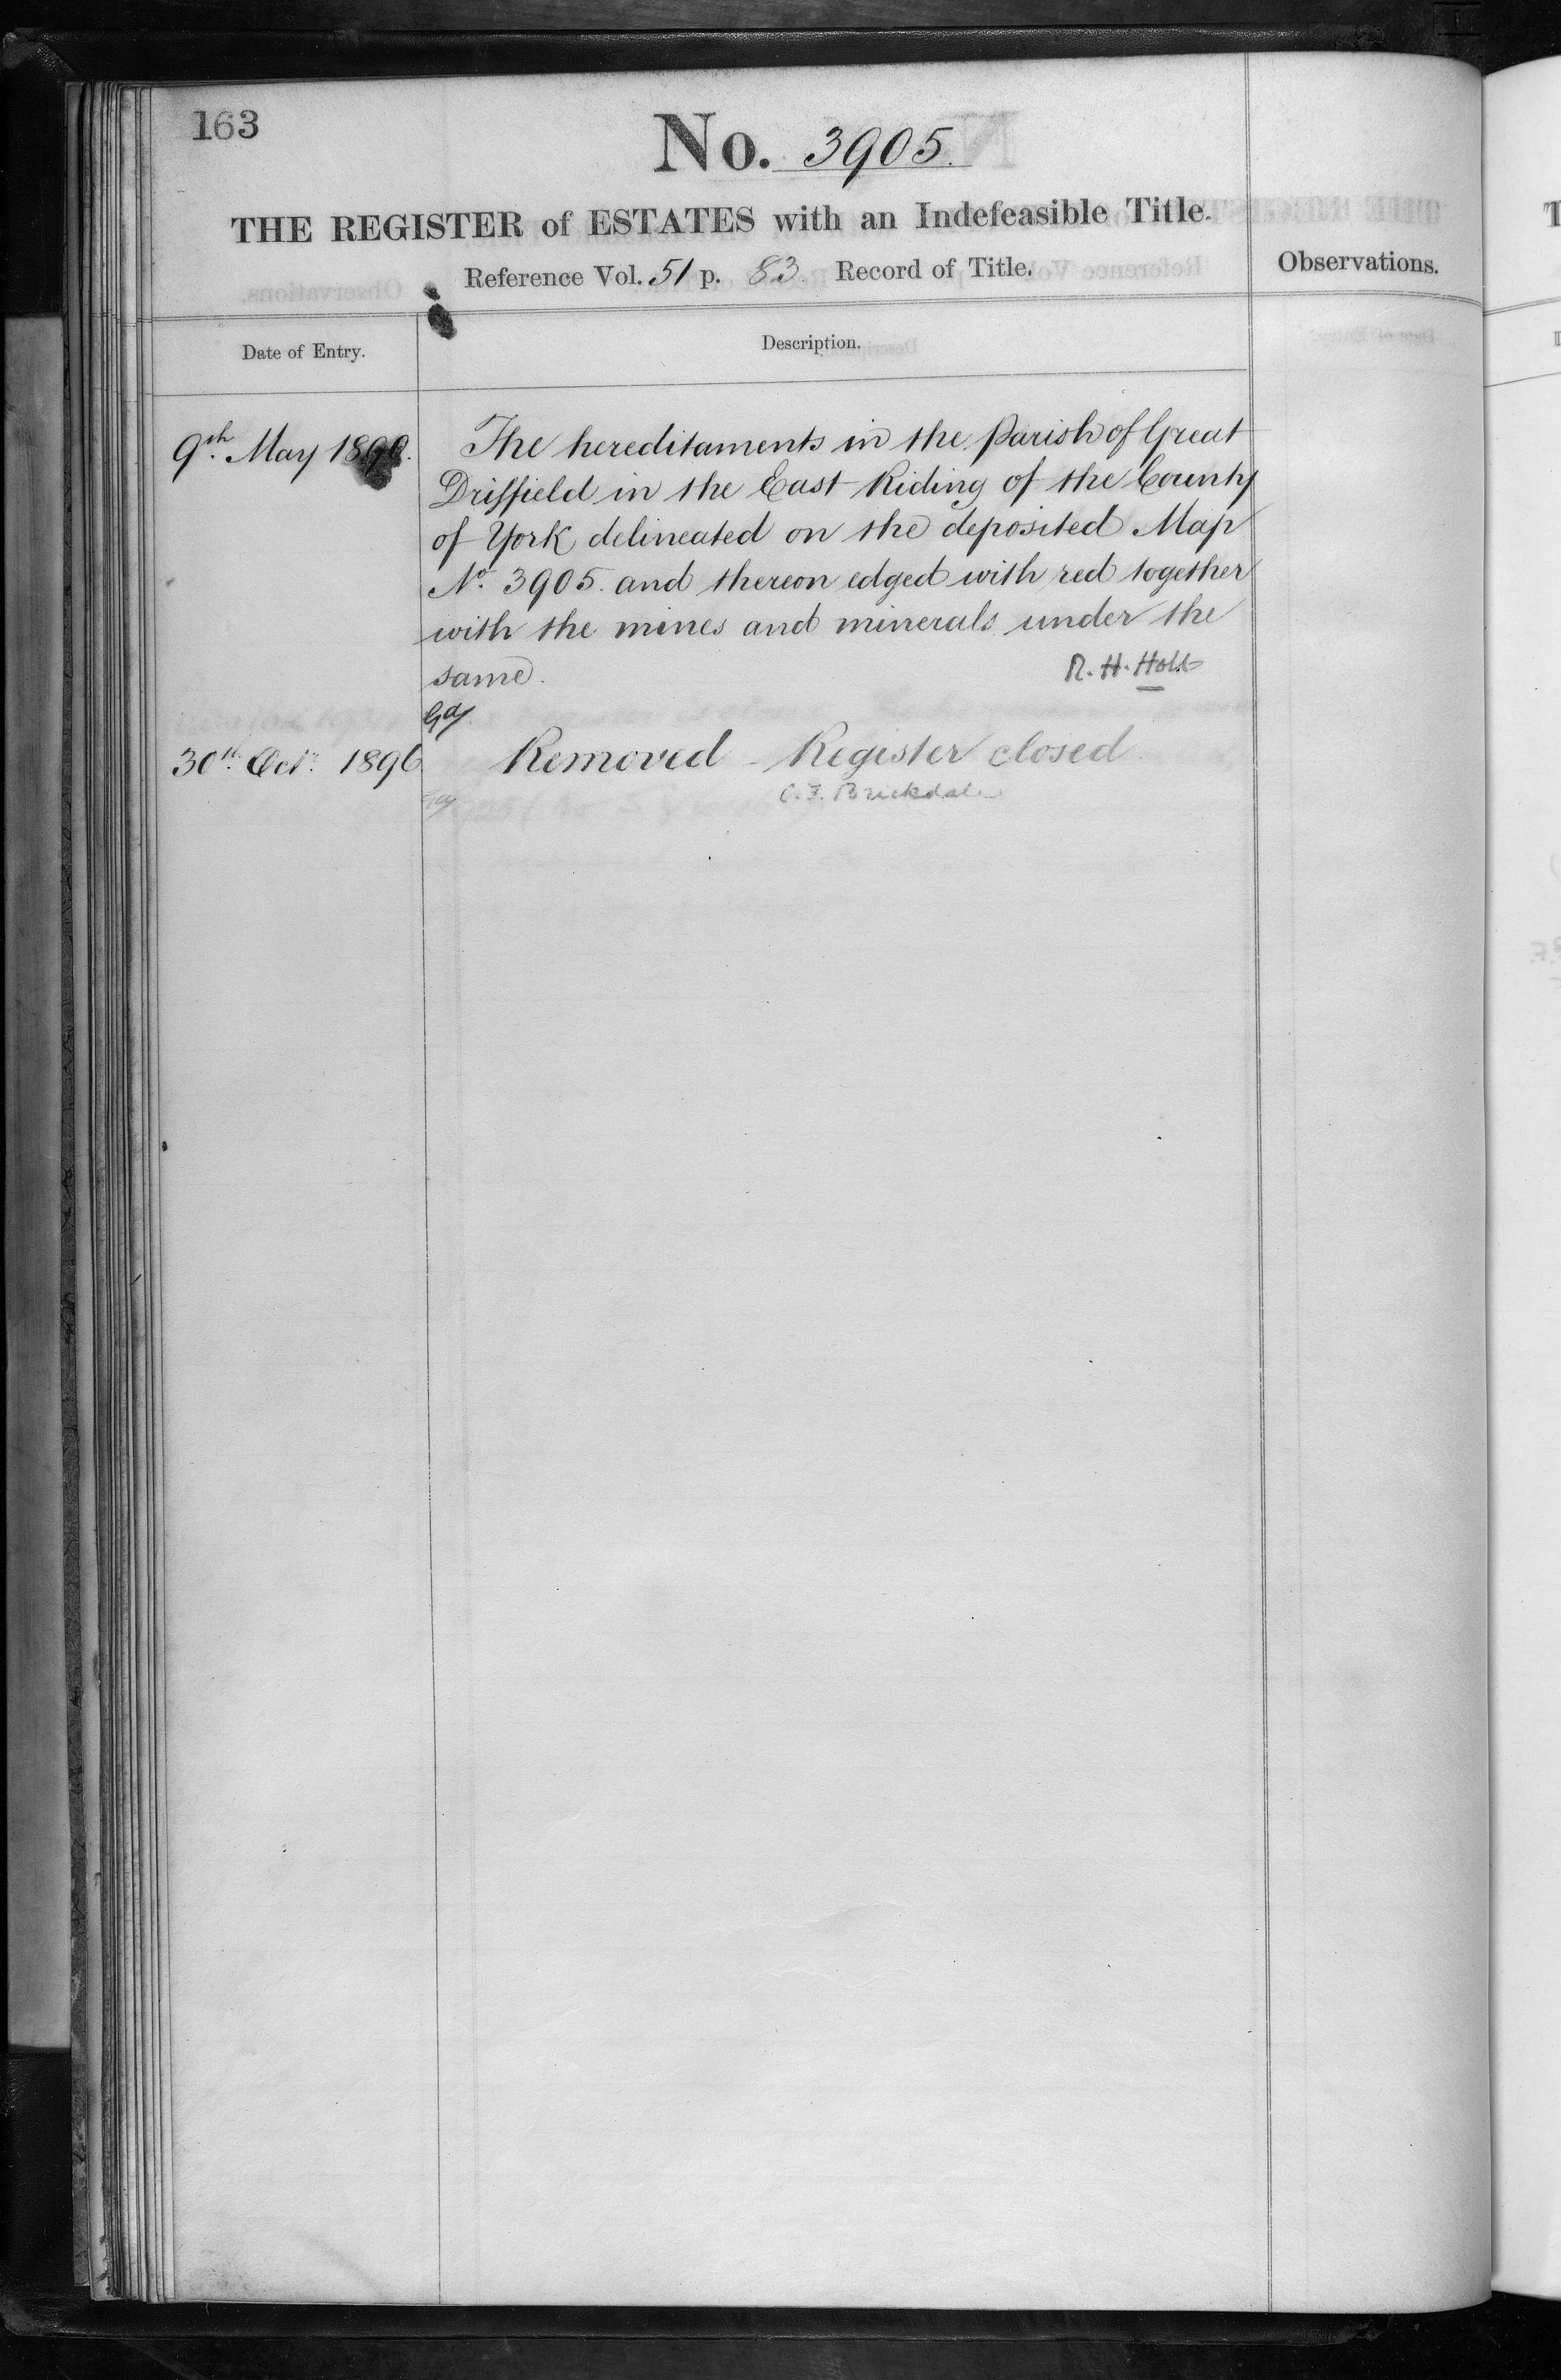 163
No. 3905.
THE REGISTER of ESTATES with an Indefeasible Title.
Reference Vol. 51 p. 83. Record of Title.
Observations.
Date of Entry.
Description.
9th. May 1890.
The hereditaments in the Parish of Great
Driffield in the East Riding of the County
of York delineated on the deposited Map
No. 3905. and thereon edged with red together
with the mines and minerals under the
same.
R. H. Holt
30th. Octr. 1896
Removed - Register closed
C. F. Brickdale